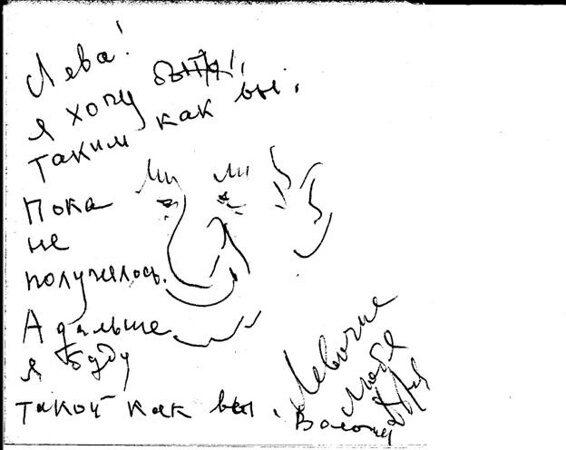 Лева!
я хочу быть
таким как вы.
Пока
не
получилось.
А дальше
я буду
такой как вы.
Левочке
любя